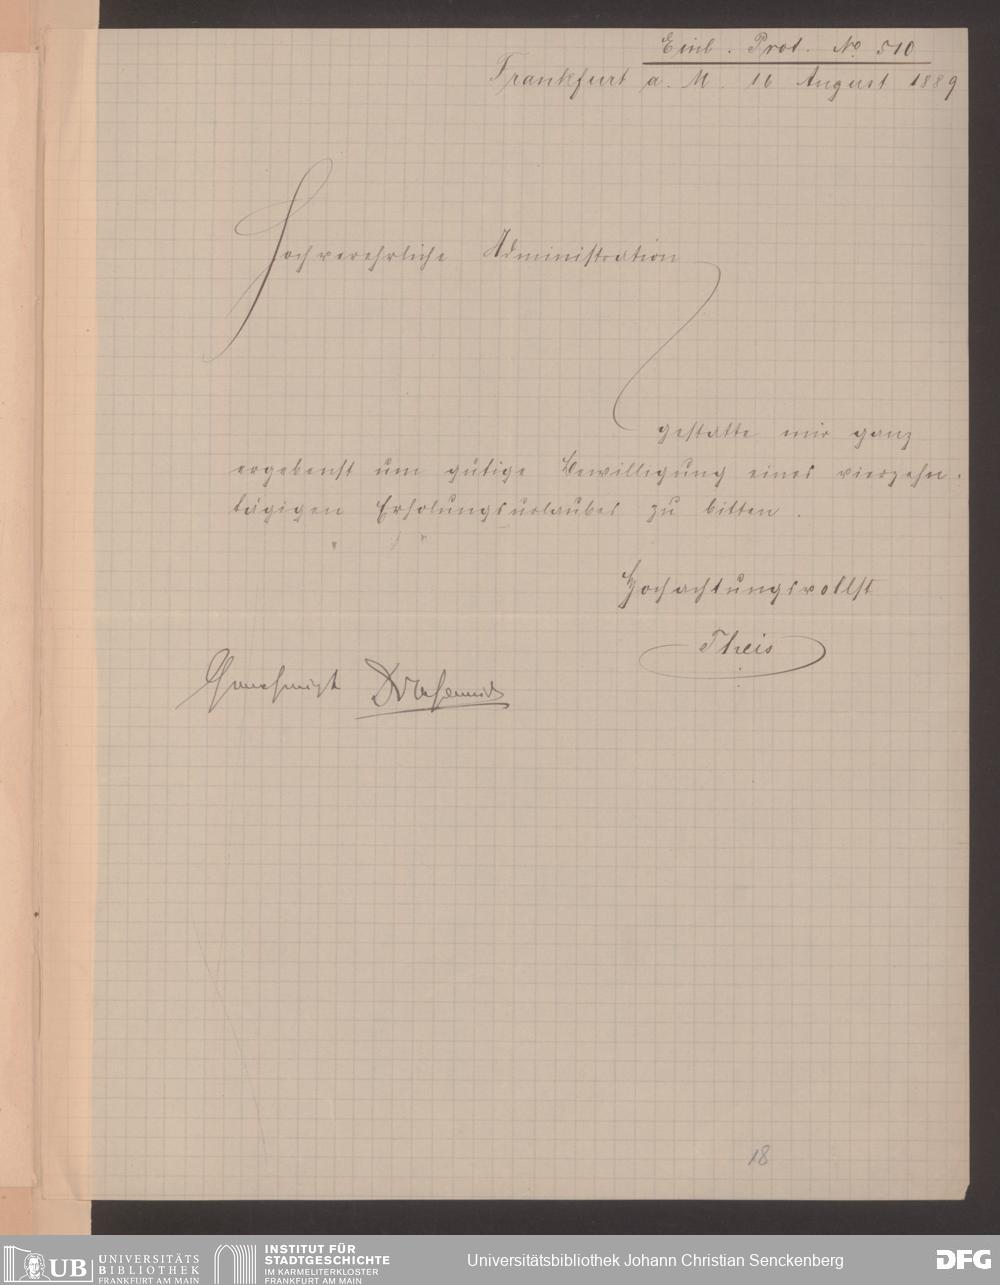 Einl. Prot. No 510
Frankfurt a. M. 16 August 1889
Hochverehrliche Administration
gestatte mir ganz
ergebenst um gütige Bewilligung eines vierzehn-
tägigen Erholungsurlaubes zu bitten.
Hochachtungsvollst
Theis
Genehmigt
18
UB UNIVERSITÄTS BIBLIOTHEK FRANKFURT AM MAIN
INSTITUT FÜR STADTGESCHICHTE IM KARMELITERKLOSTER FRANKFURT AM MAIN
Universitätsbibliothek Johann Christian Senckenberg
DFG